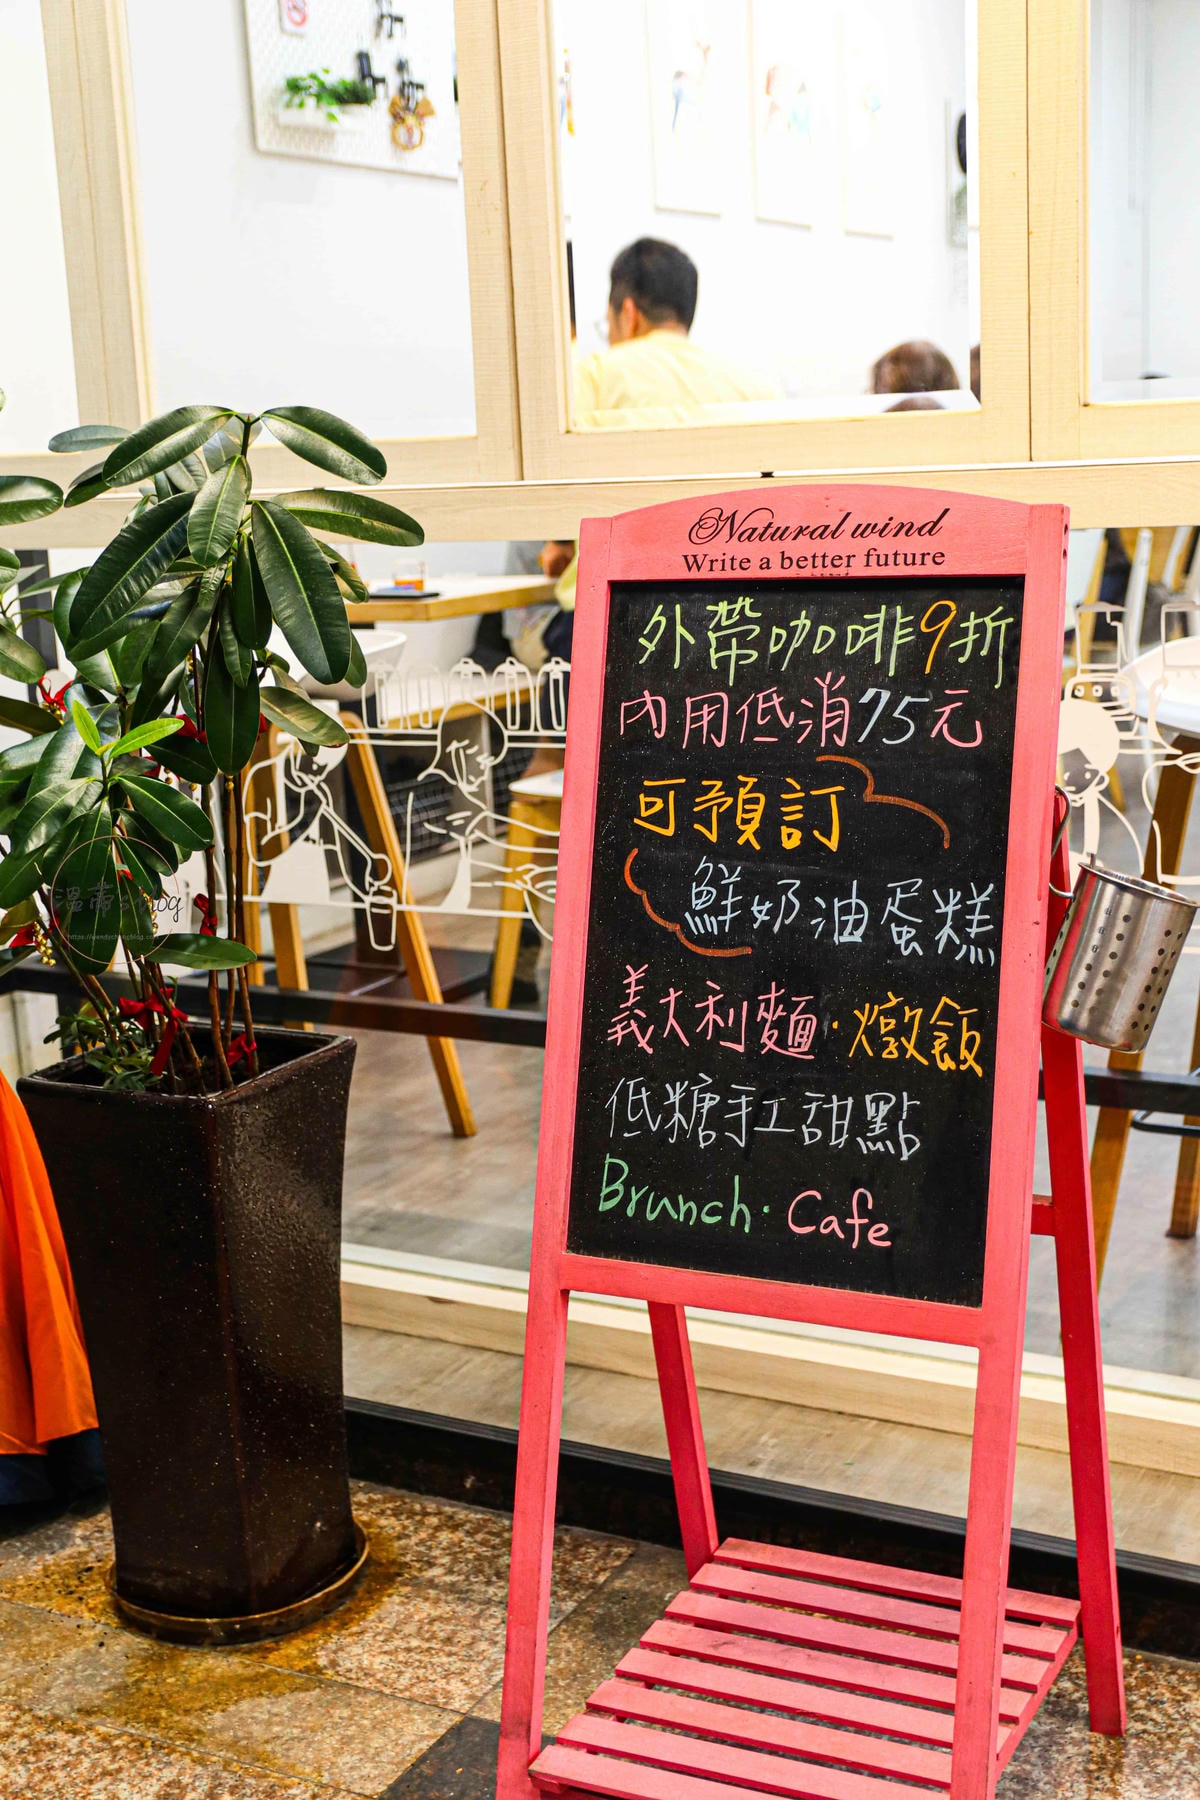 Natural wind
Write a better future
外帶咖啡9折
內用低消75元
可預訂
鮮奶油蛋糕
義大利麵·燉飯
低糖手工甜點
Brunch · Cafe
溫蒂's blog